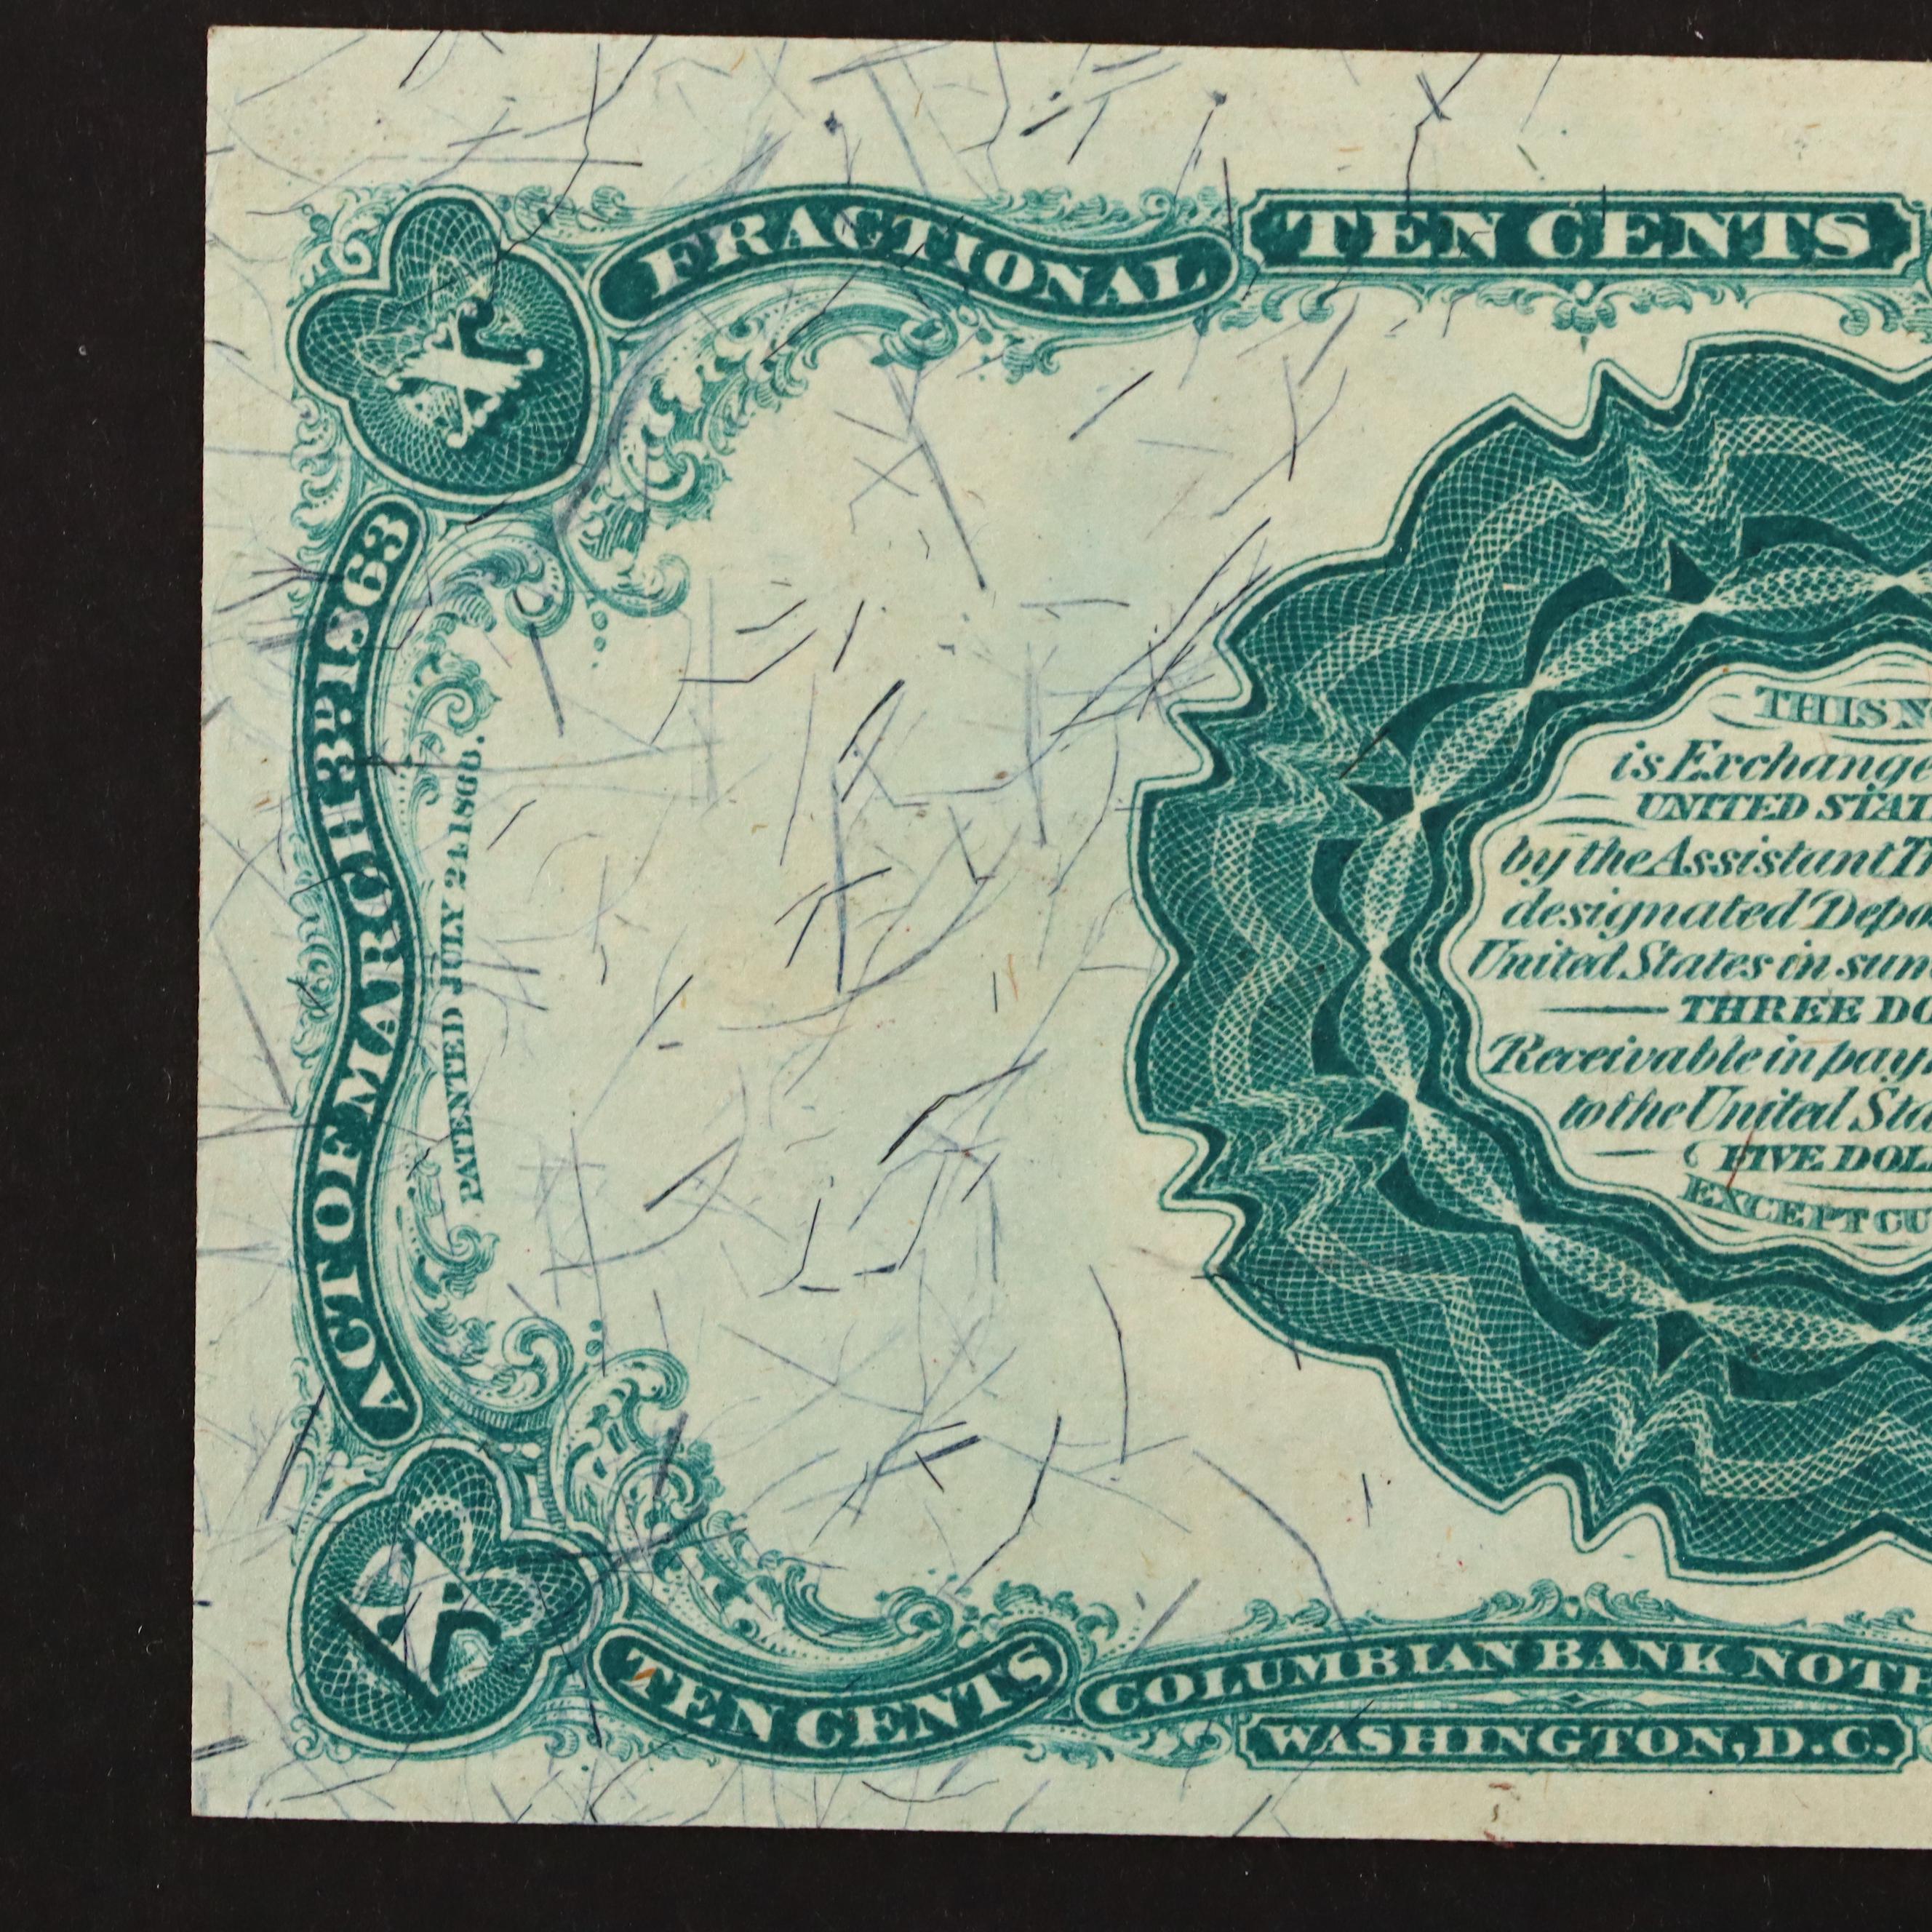 FRACTIONAL
TEN CENTS
X
ACT OF MARCH 3RD 1863
PATENTED JULY 24 1866.
THIS
is Exchange
UNITED STAT
by the Assistant
designated Depo
United States in sum
THREE DO
Receivable in pay
to the United Sta
FIVE DOL
EXCEPT CU
X
TEN CENTS
COLUMBIAN BANK NOTE
WASHINGTON, D.C.